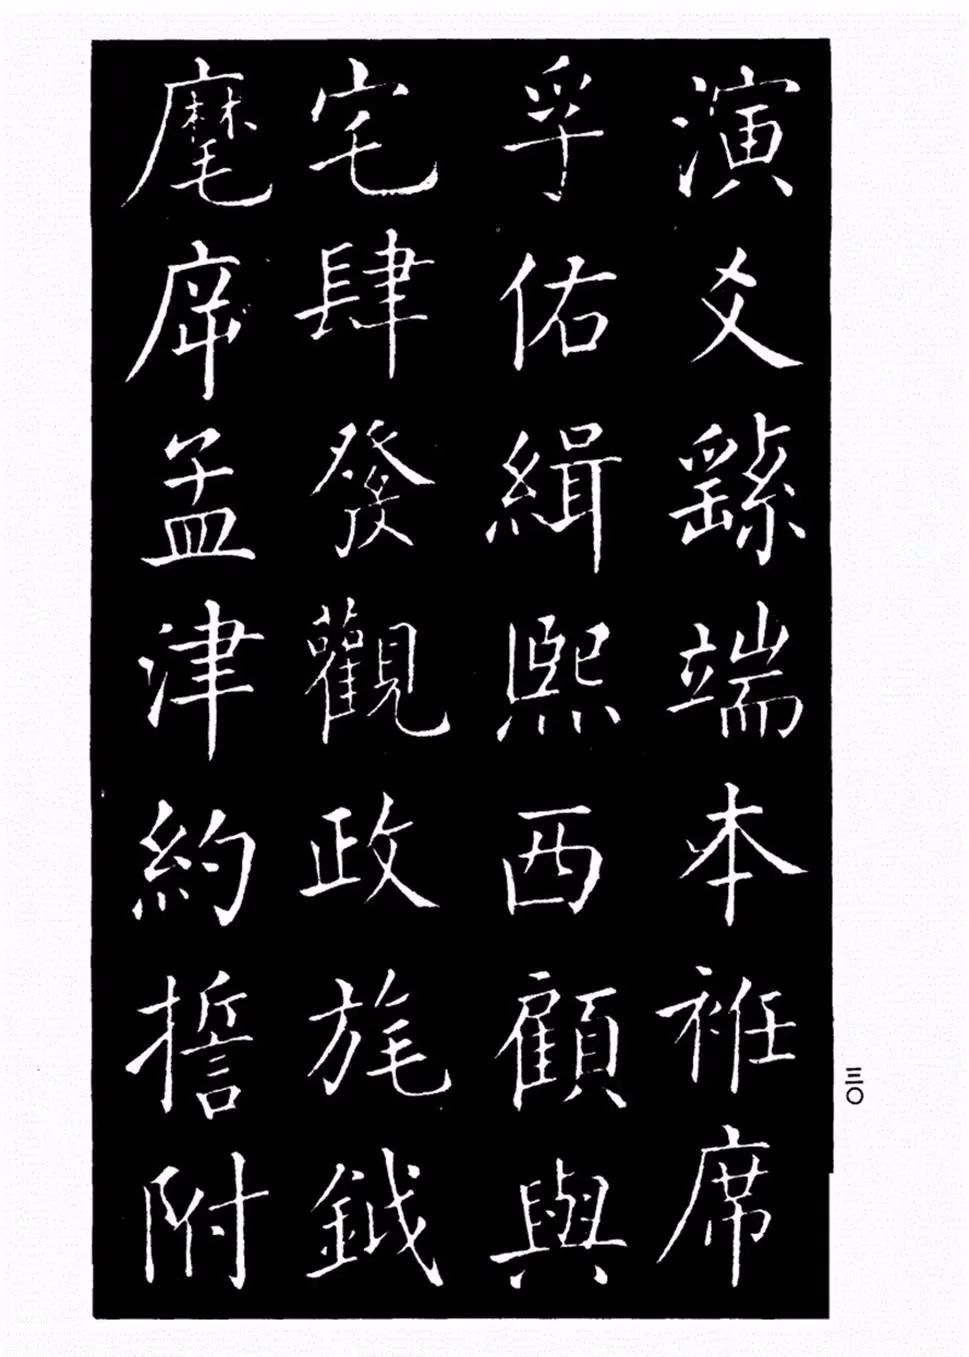 演爻繇端本袵席
孚佑緝熙西顧與
宅肆發觀政旄鉞
麾席孟津約誓附
三〇